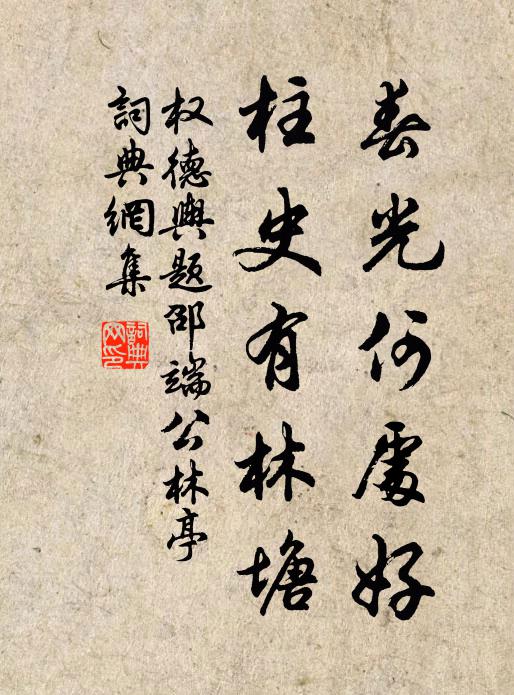 春光何處好
柱史有林塘
权德輿題邵端公林亭
詞典網集
詞典網印